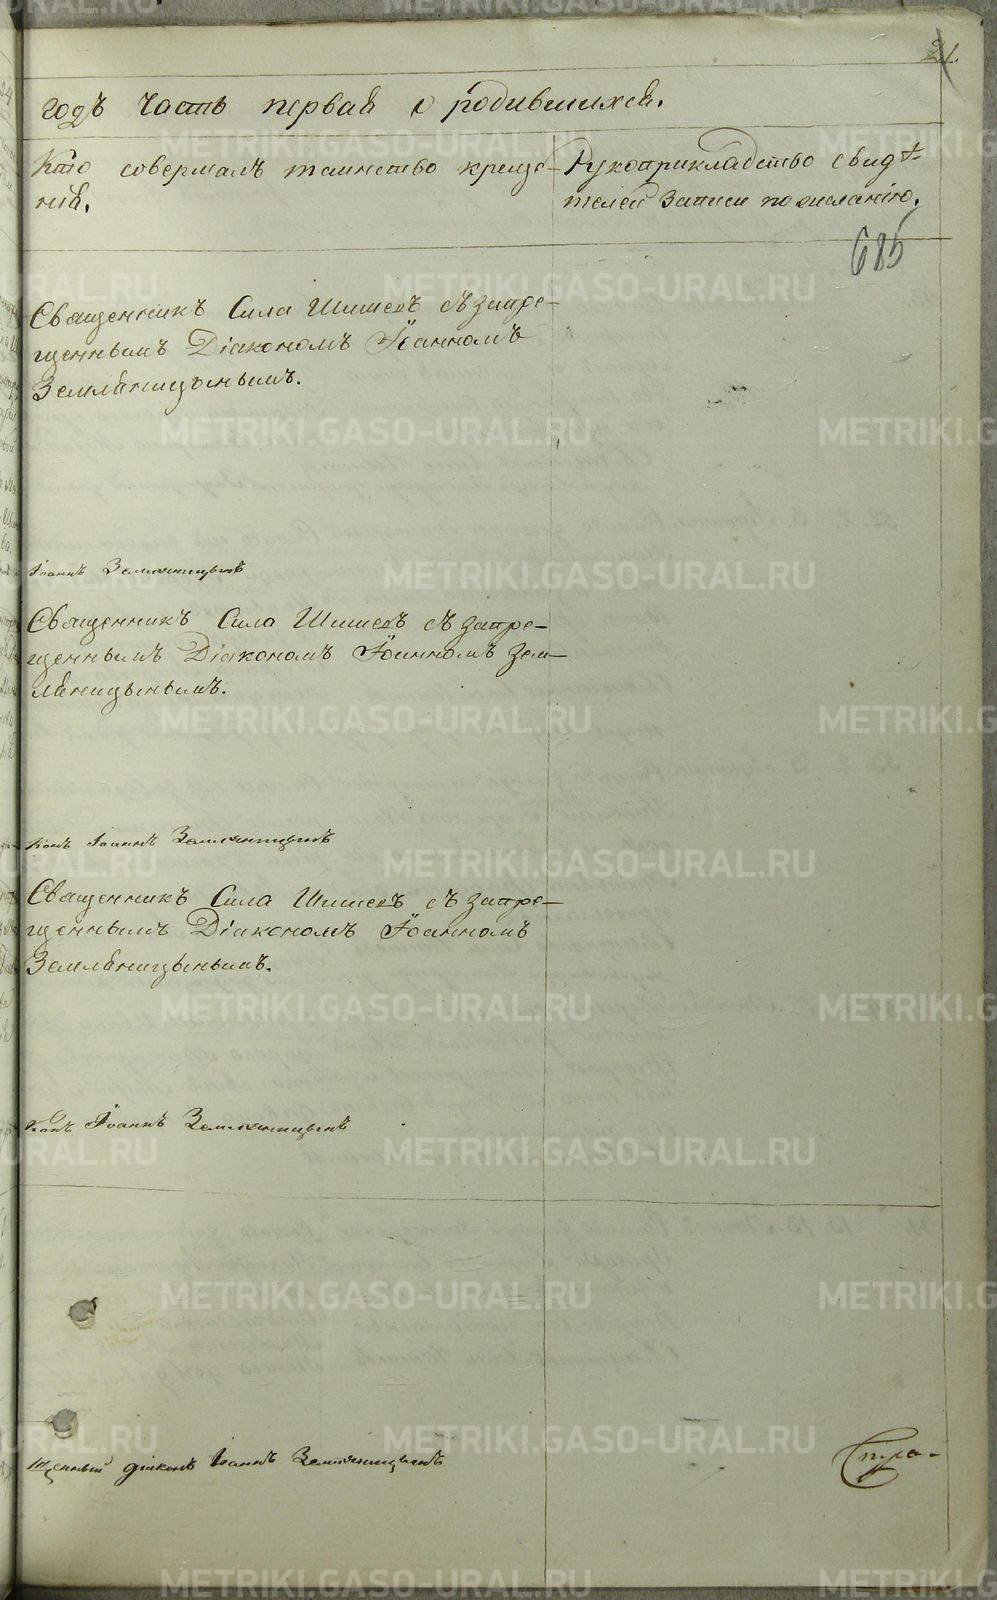 21.
годъ часть первая о родившихся.
Кто совершалъ таинство креще-
нія.
Рукоприкладство свидѣ-
телей записи по желанію.
685
Священникъ Сила Шишевъ съ запре-
щеннымъ Діакономъ Іоанномъ
Земляницынымъ.
Іоаннъ Земляницынъ
Священникъ Сила Шишевъ съ запре-
щеннымъ Діакономъ Іоанномъ Зем-
ляницынымъ.
конъ Іоаннъ Земляницынъ
Священникъ Сила Шишевъ съ запре-
щеннымъ Діакономъ Іоанномъ
Земляницынымъ.
конъ Іоаннъ Земляницынъ
щенный діаконъ Іоаннъ Земляницынъ
Стра-
METRIKI.GASO-URAL.RU